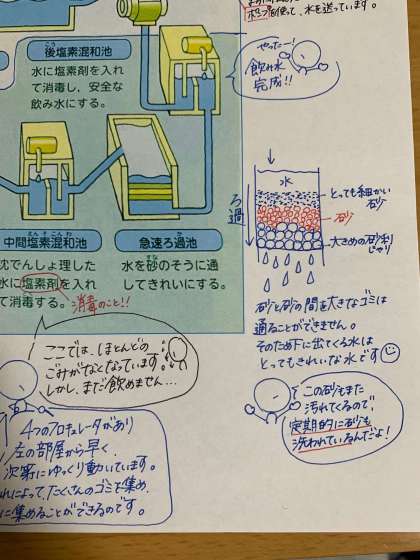 ポンプを使って、水を送っています。
後塩素混和池
水に塩素剤を入れ
て消毒し、安全な
飲み水にする。
やったー!
飲み水
完成!!
水
とっても細かい
砂
砂
大きめの砂利
じゃり
ろ過
中間塩素混和池
えんそこんわ
沈でんしょ理した
水に塩素剤を入れ
て消毒する。
消毒のこと!!
急速ろ過池
水を砂のそうに通
してきれいにする。
すな
砂と砂の間を大きなゴミは
通ることができません。
そのため下に出てくる水は
とってもきれいな水です
ここでは、ほとんどの
ごみがなくなっています。
しかし、まだ飲めません...
この砂もまた
汚れてくるので、
定期的に砂も
洗われているんだよ!
4つのフロキュレータがあり
左の部屋から早く、
次第にゆっくり動いています。
れによって、たくさんのゴミを集め、
に集めることができるのです。